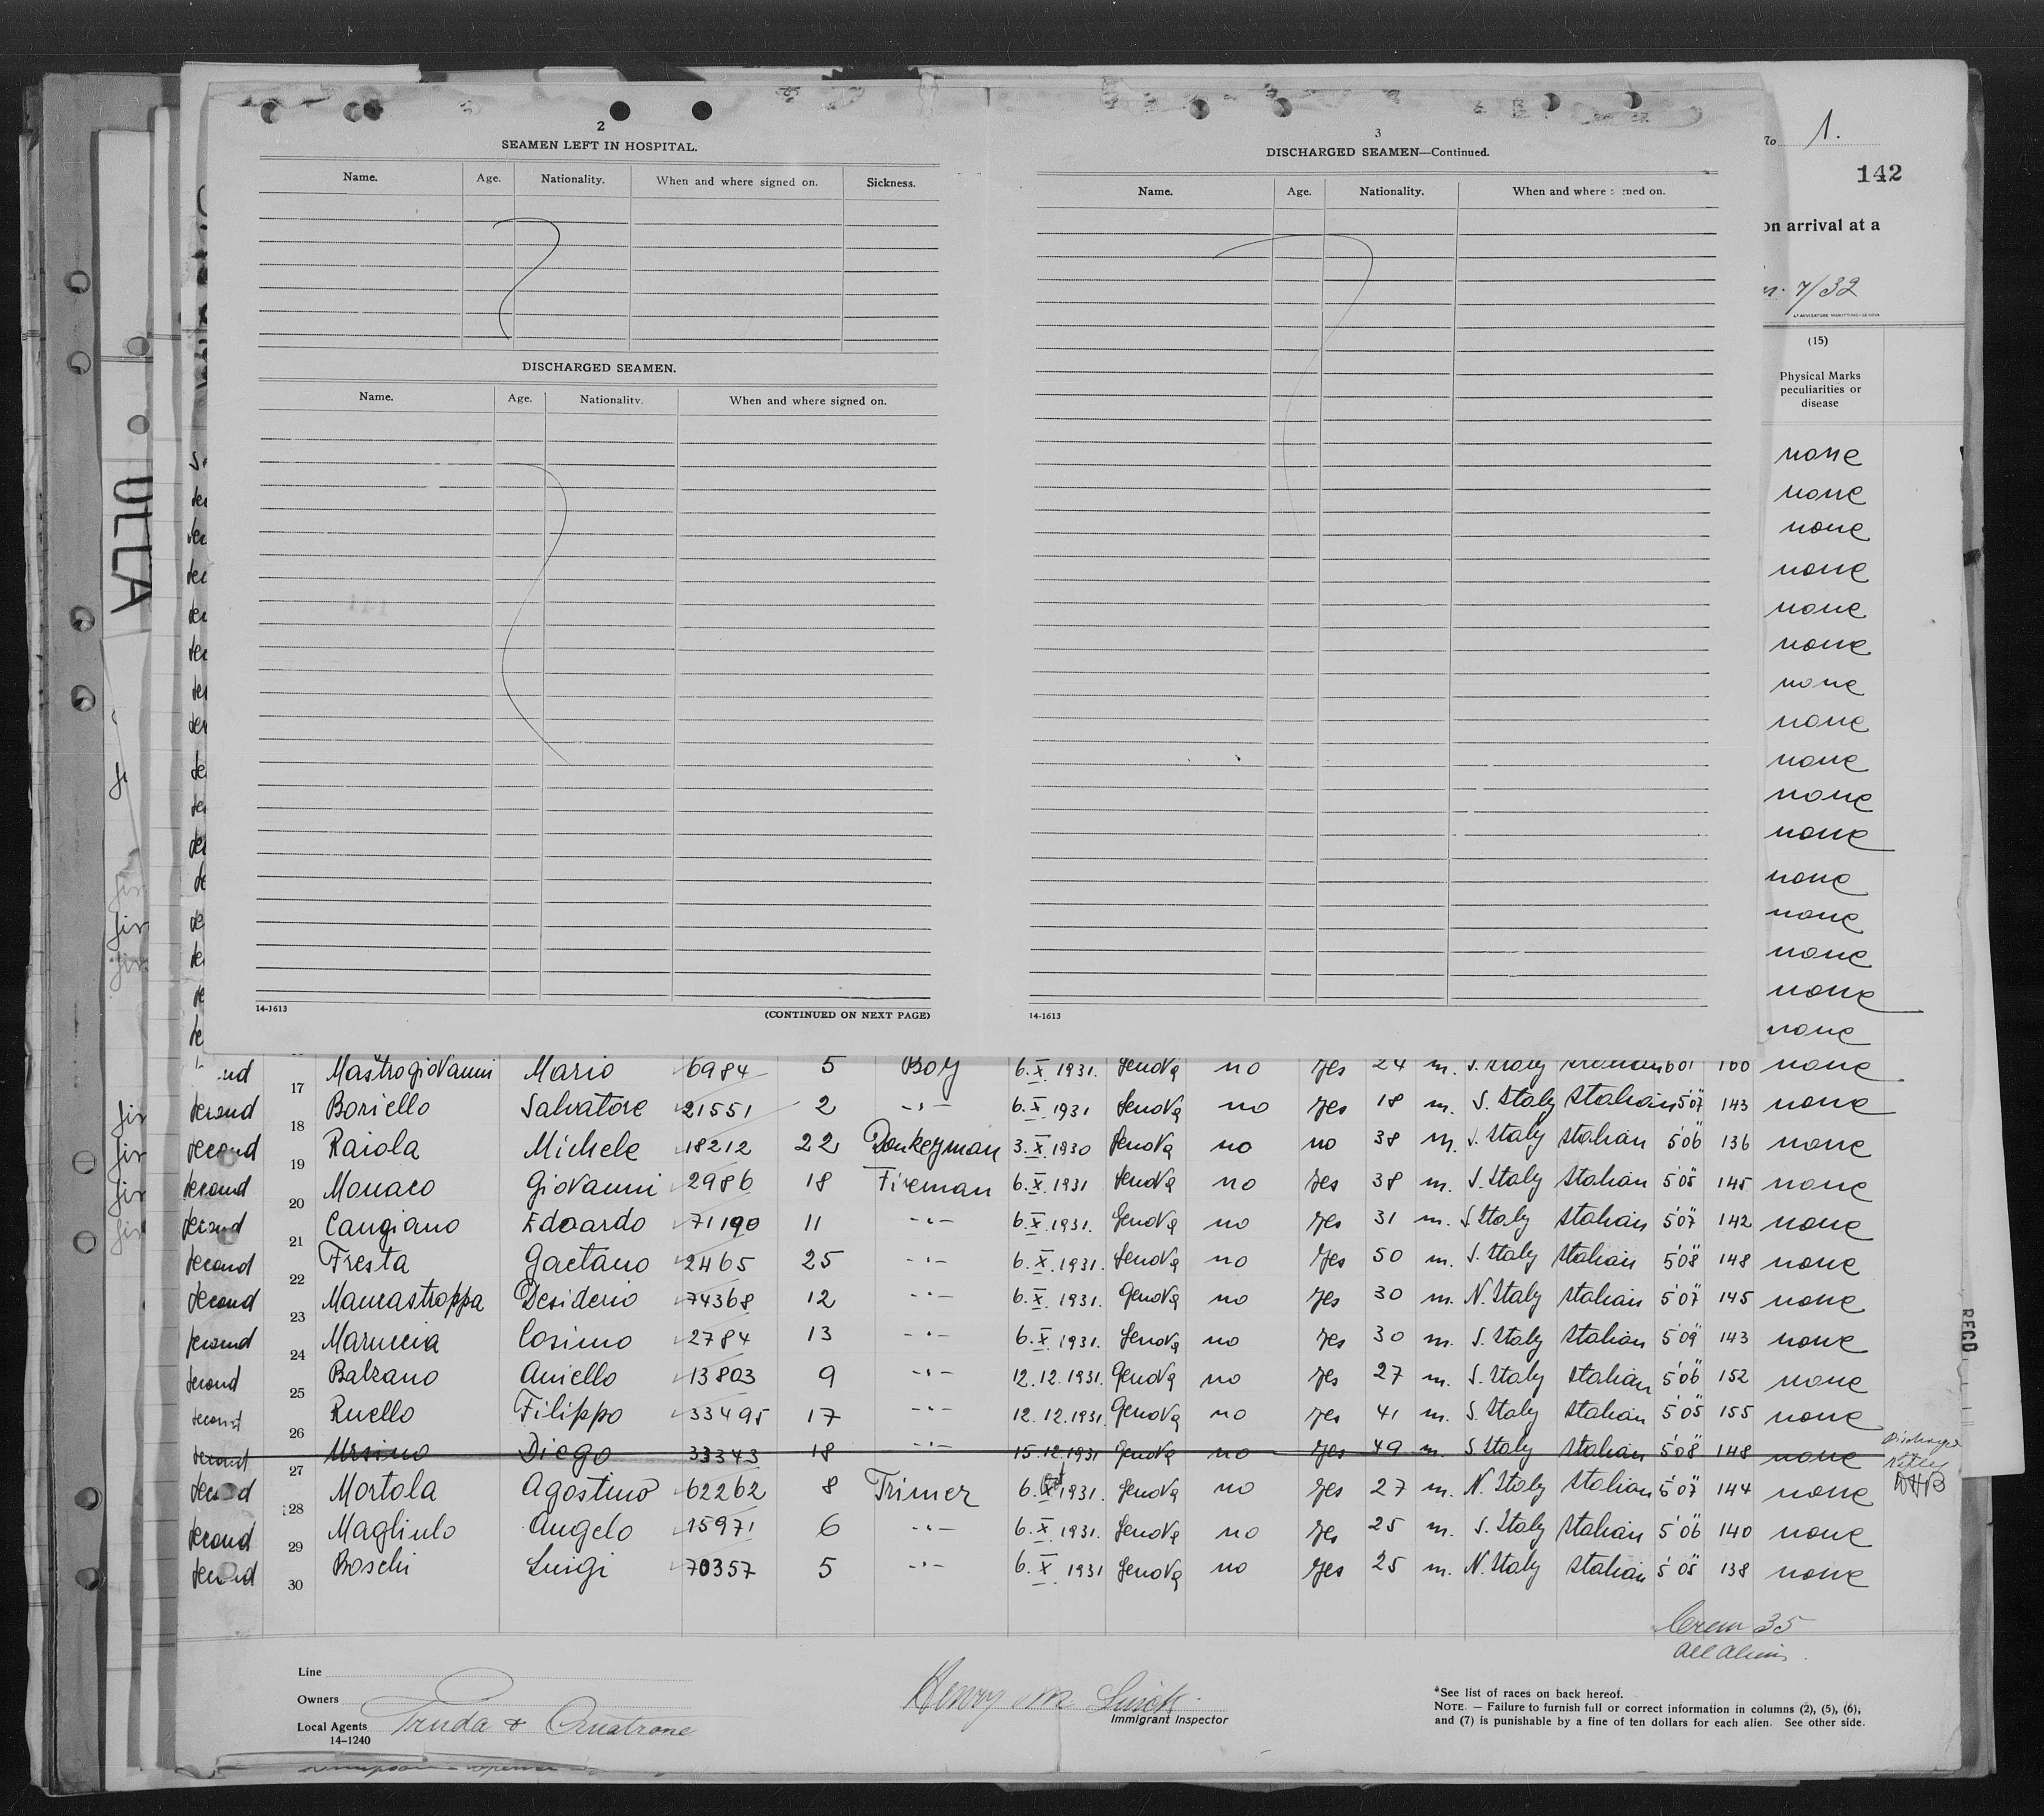 2
SEAMEN LEFT IN HOSPITAL.
Name. Age. Nationality. When and where signed on. Sickness.
DISCHARGED SEAMEN.
Name. Age. Nationality. When and where signed on.
14-1613 (CONTINUED ON NEXT PAGE)
3
DISCHARGED SEAMEN—Continued.
Name. Age. Nationality. When and where signed on.
14-1613
No 1.
142
on arrival at a
7/32
(15)
Physical Marks
peculiarities or
disease
none
none
none
none
none
none
none
none
none
none
none
none
none
none
none
none
ULLA
17 Mastrogiovanni Mario 6984 5 Boy 6.X.1931. Genova no yes 24 m. S. Italy Italian 160 none
second 18 Boriello Salvatore 21551 2 -"- 6.X.1931 Genova no yes 18 m. S. Italy Italian 5'07" 143 none
second 19 Raiola Michele 18212 22 Donkeyman 3.X.1930 Genova no no 38 m. S. Italy Italian 5'06" 136 none
second 20 Monaco Giovanni 2986 18 Fireman 6.X.1931 Genova no yes 38 m. S. Italy Italian 5'05" 145 none
second 21 Cangiano Edoardo 71190 11 -"- 6.X.1931. Genova no yes 31 m. S. Italy Italian 5'07" 142 none
second 22 Fresta Gaetano 2465 25 -"- 6.X.1931. Genova no yes 50 m. S. Italy Italian 5'08" 148 none
second 23 Mancastroppa Desiderio 74368 12 -"- 6.X.1931. Genova no yes 30 m. N. Italy Italian 5'07" 145 none
second 24 Maruccia Cosimo 2784 13 -"- 6.X.1931. Genova no yes 30 m. S. Italy Italian 5'09" 143 none
second 25 Balzano Aniello 13803 9 -"- 12.12.1931. Genova no yes 27 m. S. Italy Italian 5'06" 152 none
second 26 Ruello Filippo 33495 17 -"- 12.12.1931. Genova no yes 41 m. S. Italy Italian 5'05" 155 none
second 27 Ursino Diego 33343 18 -"- 15.12.1931 Genova no yes 49 m. S. Italy Italian 5'08" 148 none
second 28 Mortola Agostino 62262 8 Trimer 6. 1931. Genova no yes 27 m. N. Italy Italian 5'07" 144 none
second 29 Magliulo Angelo 15971 6 -"- 6.X.1931. Genova no yes 25 m. S. Italy Italian 5'06" 140 none
second 30 Boschi Luigi 70357 5 -"- 6.X.1931 Genova no yes 25 m. N. Italy Italian 5'05" 138 none
RECD
Crew 35
all aliens.
Line
Owners
Local Agents Truda &
14-1240
Henry M
Immigrant Inspector
*See list of races on back hereof.
NOTE. — Failure to furnish full or correct information in columns (2), (5), (6),
and (7) is punishable by a fine of ten dollars for each alien. See other side.